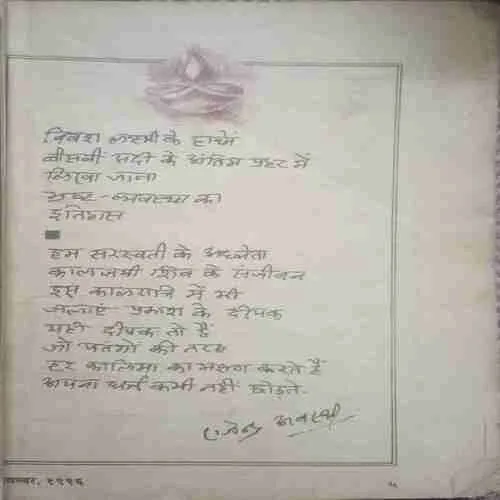 विवश लक्ष्मी के हाथों
बीसवीं सदी के अंतिम प्रहर में
लिखा जाना
भ्रष्ट-व्यवस्था का
इतिहास
हम सरस्वती के अध्येता
कालजयी शिव के संजीवन
इस कालरात्रि में भी
जलाएं प्रकाश के दीपक
यही दीपक तो हैं
जो पतंगों की तरह
हर कालिमा का भक्षण करते हैं
अपना धर्म कभी नहीं छोड़ते.
राजेन्द्र अवस्थी